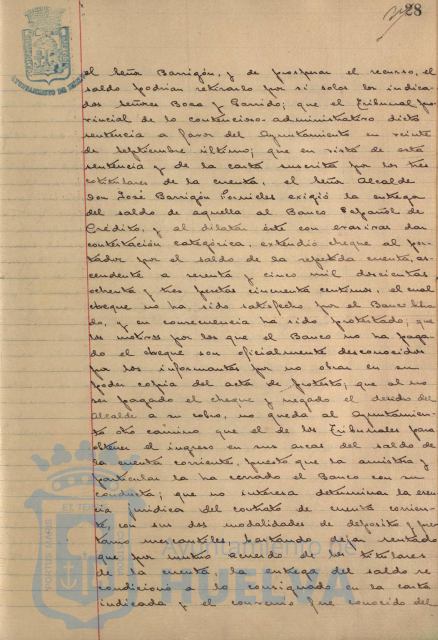 28
el Señor Barrigón, y de prosperar el recurso, el
saldo podrían retirarlo por si solos los indica-
dos Señores Boza y Garrido; que el Tribunal pro-
vincial de lo contencioso-administrativo dictó
sentencia a favor del Ayuntamiento en veinte
de septiembre último; que en vista de esta
sentencia y de la carta suscrita por los tres
cotitulares de la cuenta, el Señor Alcalde
Don José Barrigón Fornieles exigió la entrega
del saldo de aquella al Banco Español de
Crédito, y al dilatar éste con evasivas dar
contestación categórica, extendió cheque al por-
tador por el saldo de la repetida cuenta, as-
cendente a setenta y cinco mil doscientas
ochenta y tres pesetas cincuenta céntimos, el cual
cheque no ha sido satisfecho por el Banco libra-
do, y en consecuencia ha sido protestado; que
los motivos por los que el Banco no ha paga-
do el cheque son oficialmente desconocidos
por los informantes por no obrar en su
poder copia del acta de protesto; que al no
ser pagado el cheque y negado el derecho del
Alcalde a su cobro, no queda al Ayuntamien-
to otro camino que el de los Tribunales para
obtener el ingreso en sus arcas del saldo de
la cuenta corriente, puesto que la amistosa y
particular la ha cerrado el Banco con su
conducta; que no interesa determinar la esen-
cia jurídica del contrato de cuenta corrien-
te, con sus dos modalidades de depósito y prés-
tamo mercantiles, bastando dejar sentado
que por mutuo acuerdo de los titulares
de la cuenta, la entrega del saldo se
condicionó a lo consignado en la carta
indicada y el convenio fue conocido del
AYUNTAMIENTO DE HUELVA
HUELVA